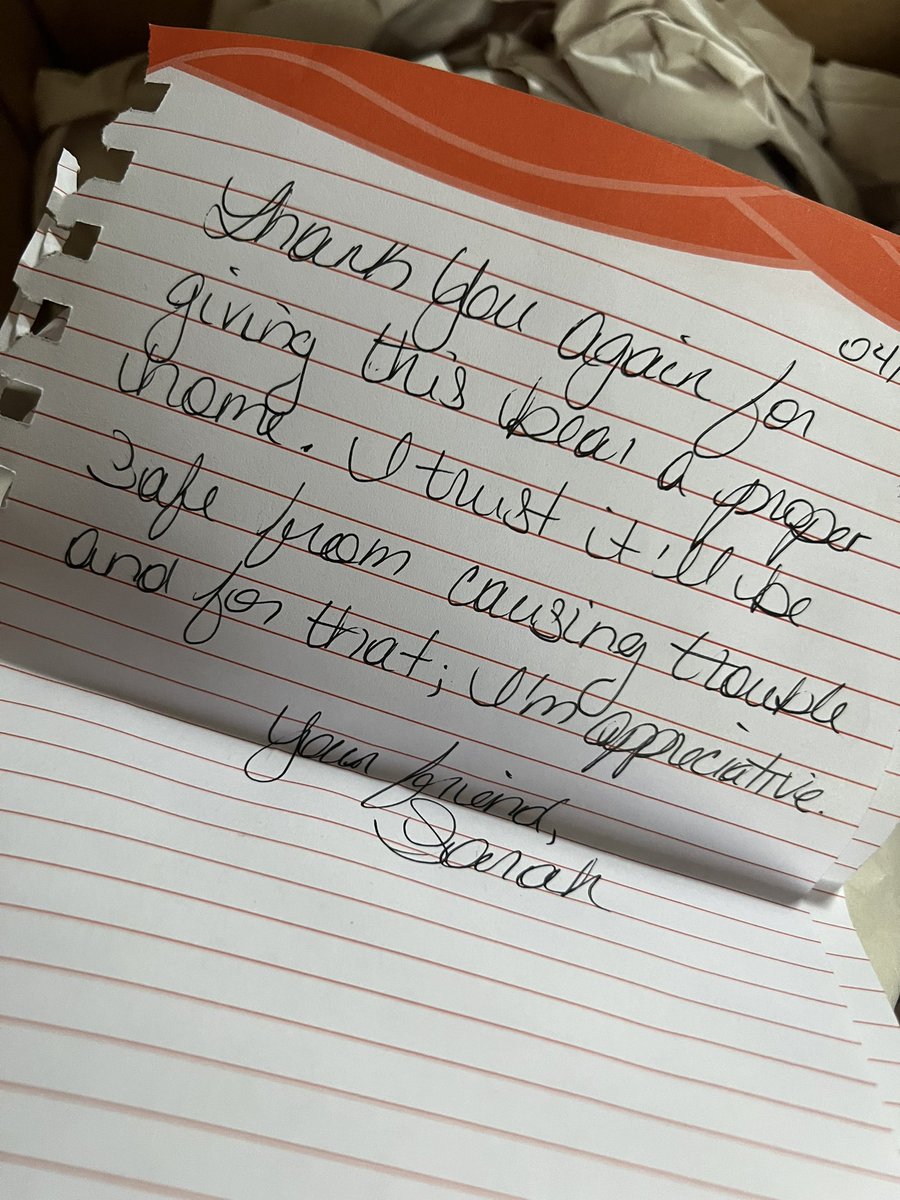 04/
Thank You again for
giving this bear a proper
home. I trust it'll be
safe from causing trouble
and for that; I'm appreciative.
Your friend,
Sarah